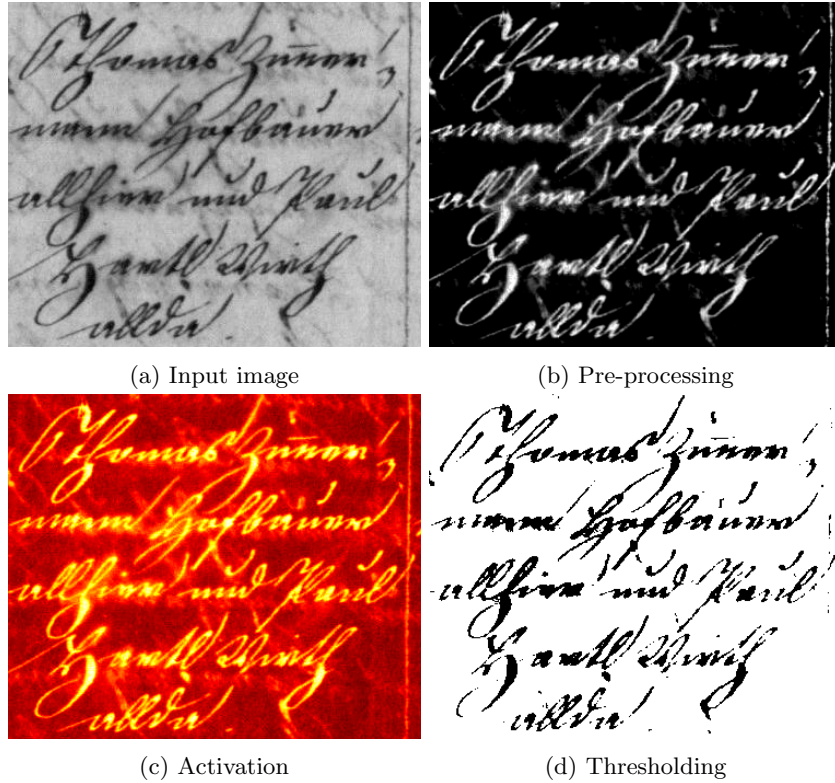 Thomas Zim̄er,
mann Hofbauer
allhier und Paul
Hartl Wirth
allda.
(a) Input image
Thomas Zim̄er,
mann Hofbauer
allhier und Paul
Hartl Wirth
allda.
(b) Pre-processing
Thomas Zim̄er,
mann Hofbauer
allhier und Paul
Hartl Wirth
allda.
(c) Activation
Thomas Zim̄er,
mann Hofbauer
allhier und Paul
Hartl Wirth
allda.
(d) Thresholding